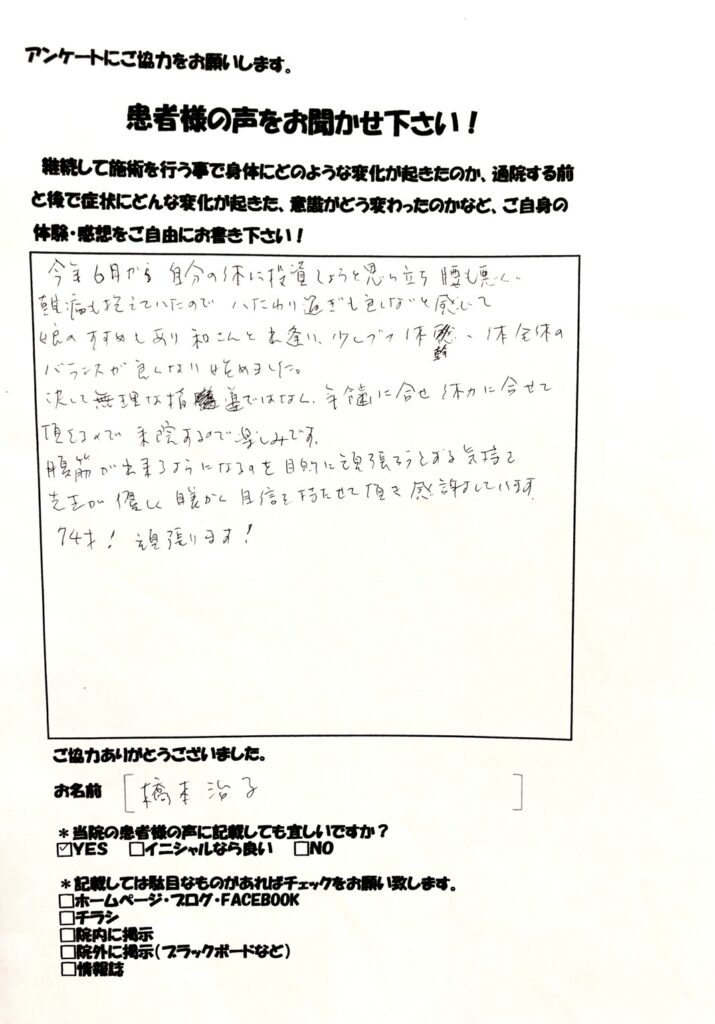 アンケートにご協力をお願いします。
患者様の声をお聞かせ下さい！
継続して施術を行う事で身体にどのような変化が起きたのか、通院する前
と後で症状にどんな変化が起きた、意識がどう変わったのかなど、ご自身の
体験・感想をご自由にお書き下さい！
今年6月から自分の体に投資しようと思い立ち腰も悪く、
難病も抱えていたのでいたわり過ぎも良しないと感じて
娘のすすめもあり和さんと出逢い、少しづつ体幹、体全体の
バランスが良くなり始めました。
決して無理な指導ではなく、年齢に合せ体力に合せて
頂きるので来院するので楽しみです。
腹筋が出来るようになるのを目的に頑張ろうとする気持を
先生が優しく暖かく自信を持たせて頂き感謝しています
74才！頑張ります！
ご協力ありがとうございました。
お名前 橋本 治子
＊当院の患者様の声に記載しても宜しいですか？
☑YES □イニシャルなら良い □NO
＊記載しては駄目なものがあればチェックをお願い致します。
□ホームページ・ブログ・FACEBOOK
□チラシ
□院内に掲示
□院外に掲示（ブラックボードなど）
□情報誌